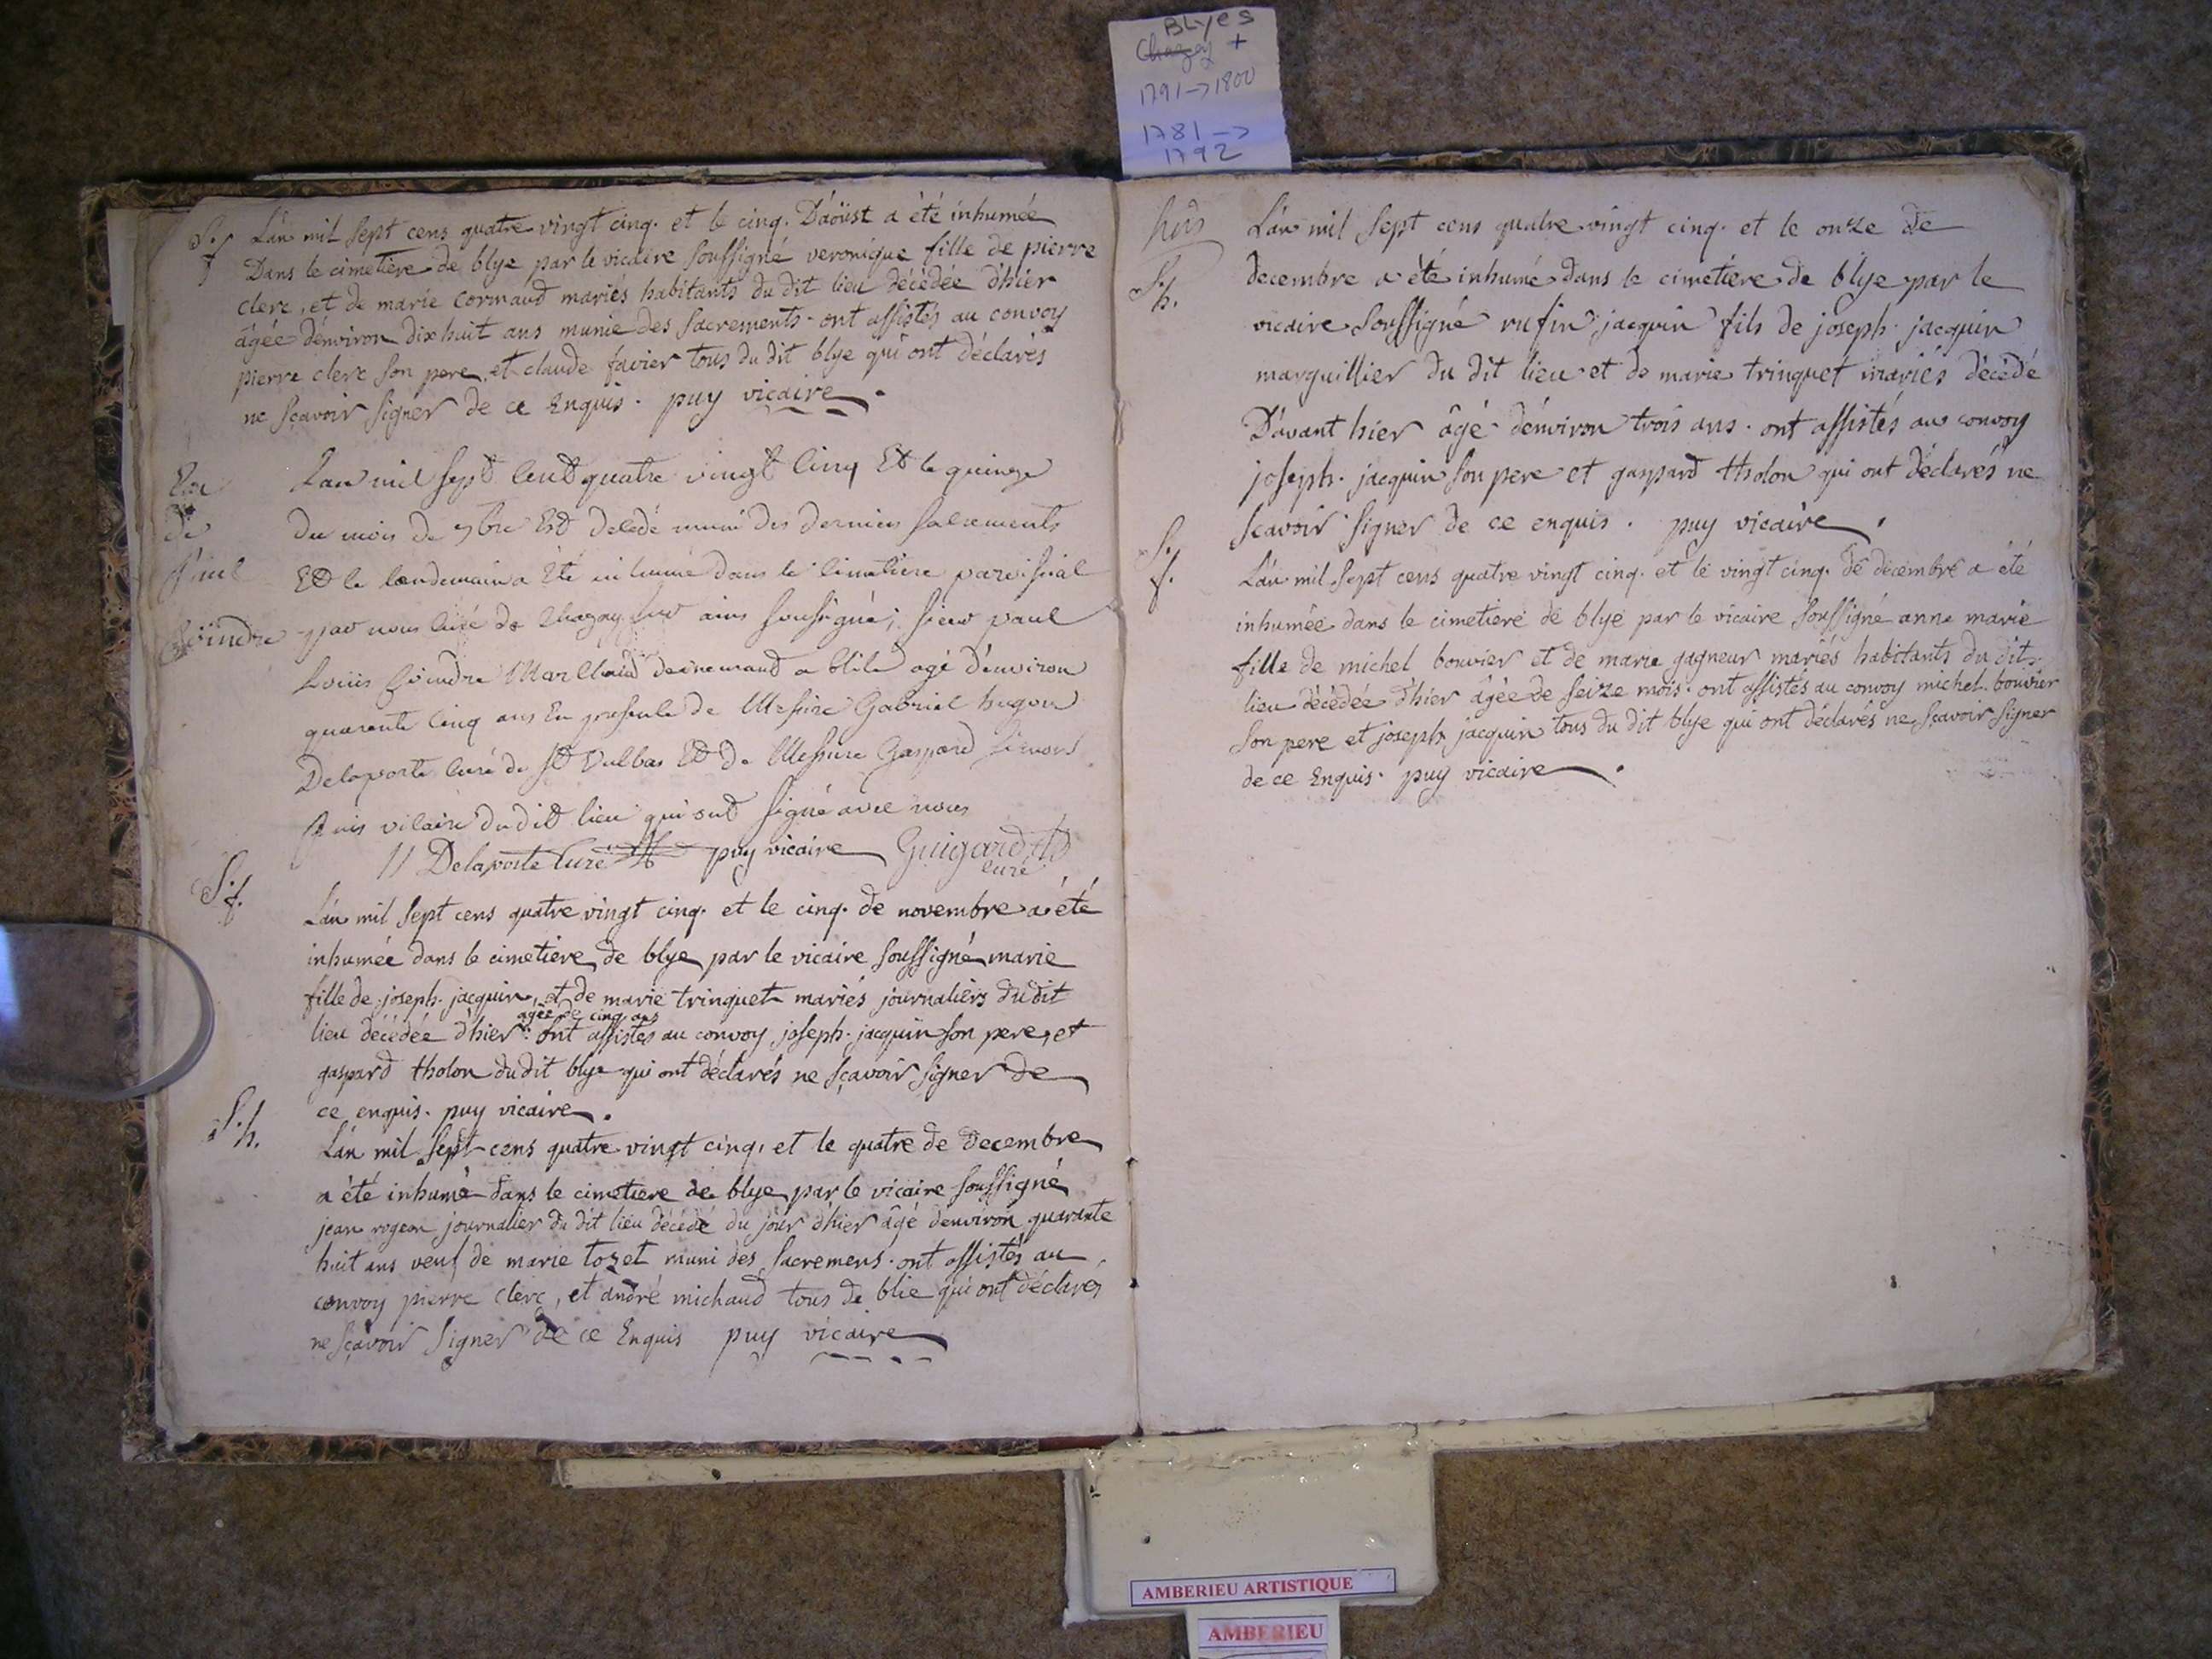 BLyes
Chazey +
1791->1800
1781->
1792
S. f
L'an mil sept cens quatre vingt cinq. et le cinq. D'aoüst a été inhumée
Dans le cimetière de blye par le vicaire soussigné veronique fille de pierre
clerc, et de marie cormaud mariés habitants du dit lieu décédée d'hier
âgée d'environ dix huit ans munie des sacrements. ont assistés au convoy
pierre clerc son pere et claude favier tous du dit blye qui ont déclarés
ne sçavoir signer de ce Enquis. puy vicaire.
de
Lan mil sept Cent quatre vingt Cinq Et le quinze
du mois de 7bre Est decedé muni des derniers sacrements
Et le landemain a Eté inhumé dans le Cimetiere paroissial
par nous Curé de Chazey sur ains soussigné; sieur paul
Louis Marchand demeurand a blie agé d'environ
quarente Cinq ans En presence de Messire Gabriel hugon
Delaporte Curé de St Vulbas Et de Messire Gaspard
puis vicaire du dit lieu qui ont signé avec nous
Delaporte Curé puy vicaire Guigard
curé
S. f.
L'an mil sept cens quatre vingt cinq. et le cinq. de novembre a été
inhumée dans le cimetiere de blye par le vicaire soussigné marie
fille de joseph. jacquin, et de marie trinquet mariés journaliers du dit
agée de cinq ans
lieu décédée d'hier. ont assistés au convoy joseph. jacquin son pere, et
gaspard tholon du dit blye qui ont déclarés ne sçavoir signer de
ce enquis. puy vicaire.
S. h.
L'an mil sept cens quatre vingt cinq, et le quatre de decembre
a été inhumé dans le cimetiere de blye par le vicaire soussigné
jean rogeon journalier du dit lieu décédé du jour d'hier âgé d'environ quarante
huit ans veuf de marie tozet muni des sacremens. ont assistés au
convoy pierre clerc, et andré michaud tous de blie qui ont déclarés
ne sçavoir signer de ce Enquis puy vicaire
S. h.
L'an mil sept cens quatre vingt cinq. et le onze de
decembre a été inhumé dans le cimetiere de blye par le
vicaire soussigné rufin jacquin fils de joseph. jacquin
marguillier du dit lieu et de marie trinquet mariés décédé
D'avant hier âgé d'environ trois ans. ont assistés au convoy
joseph. jacquin son pere et gaspard tholon qui ont déclarés ne
scavoir signer de ce enquis. puy vicaire.
S. f.
L'an mil sept cens quatre vingt cinq. et le vingt cinq. de decembre a été
inhumée dans le cimetiere de blye par le vicaire soussigné anne marie
fille de michel bouvier et de marie gagneur mariés habitants du dit
lieu décédée d'hier âgée de seize mois. ont assistés au convoy michel. bouvier
son pere et joseph jacquin tous du dit blye qui ont déclarés ne sçavoir signer
de ce Enquis. puy vicaire.
AMBERIEU ARTISTIQUE
AMBERIEU